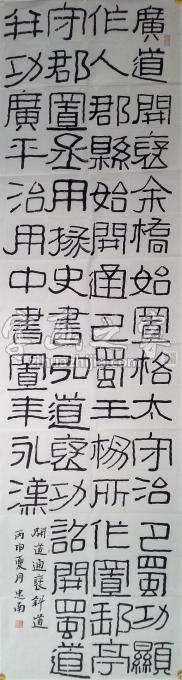 廣道開褒余橋始置格太守治巴蜀功顯
作人郡縣始開通巴蜀王楊所作置郵亭
守郡置丞用掾史書弘道褒功詔開蜀道
功廣平治用中書置年永漢
開道通褒斜道
丙申夏月忠南